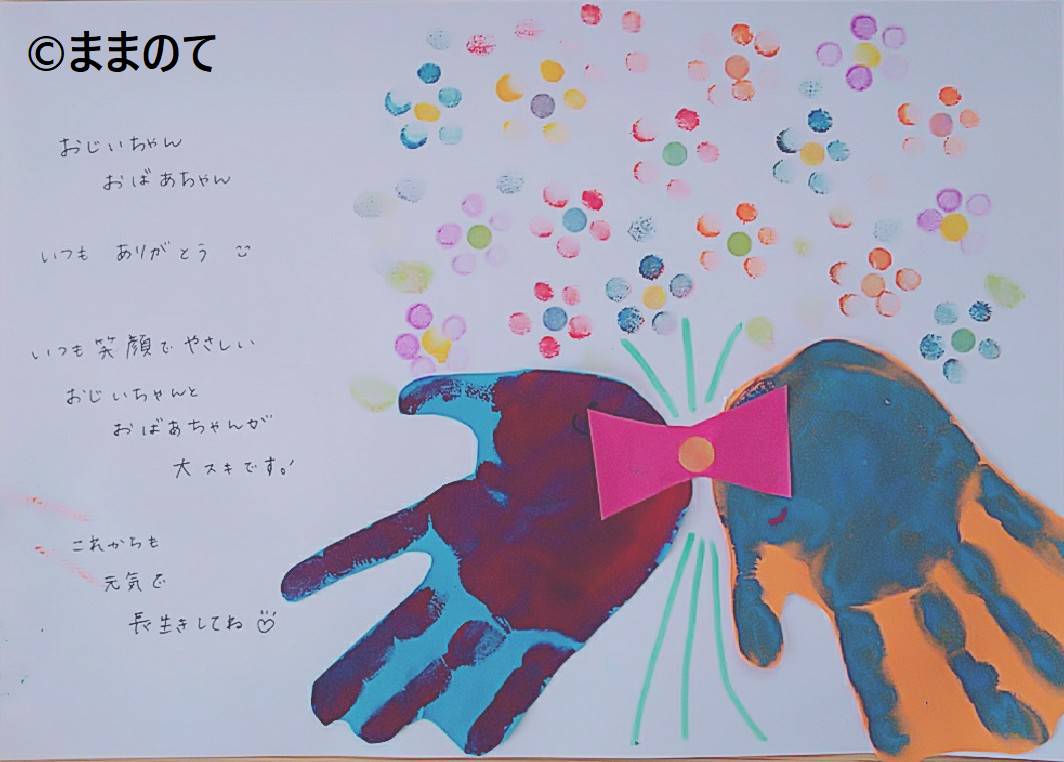 ©ままのて
おじいちゃん
おばあちゃん
いつも ありがとう
いつも笑顔でやさしい
おじいちゃんと
おばあちゃんが
大スキです。
これからも
元気で
長生きしてね